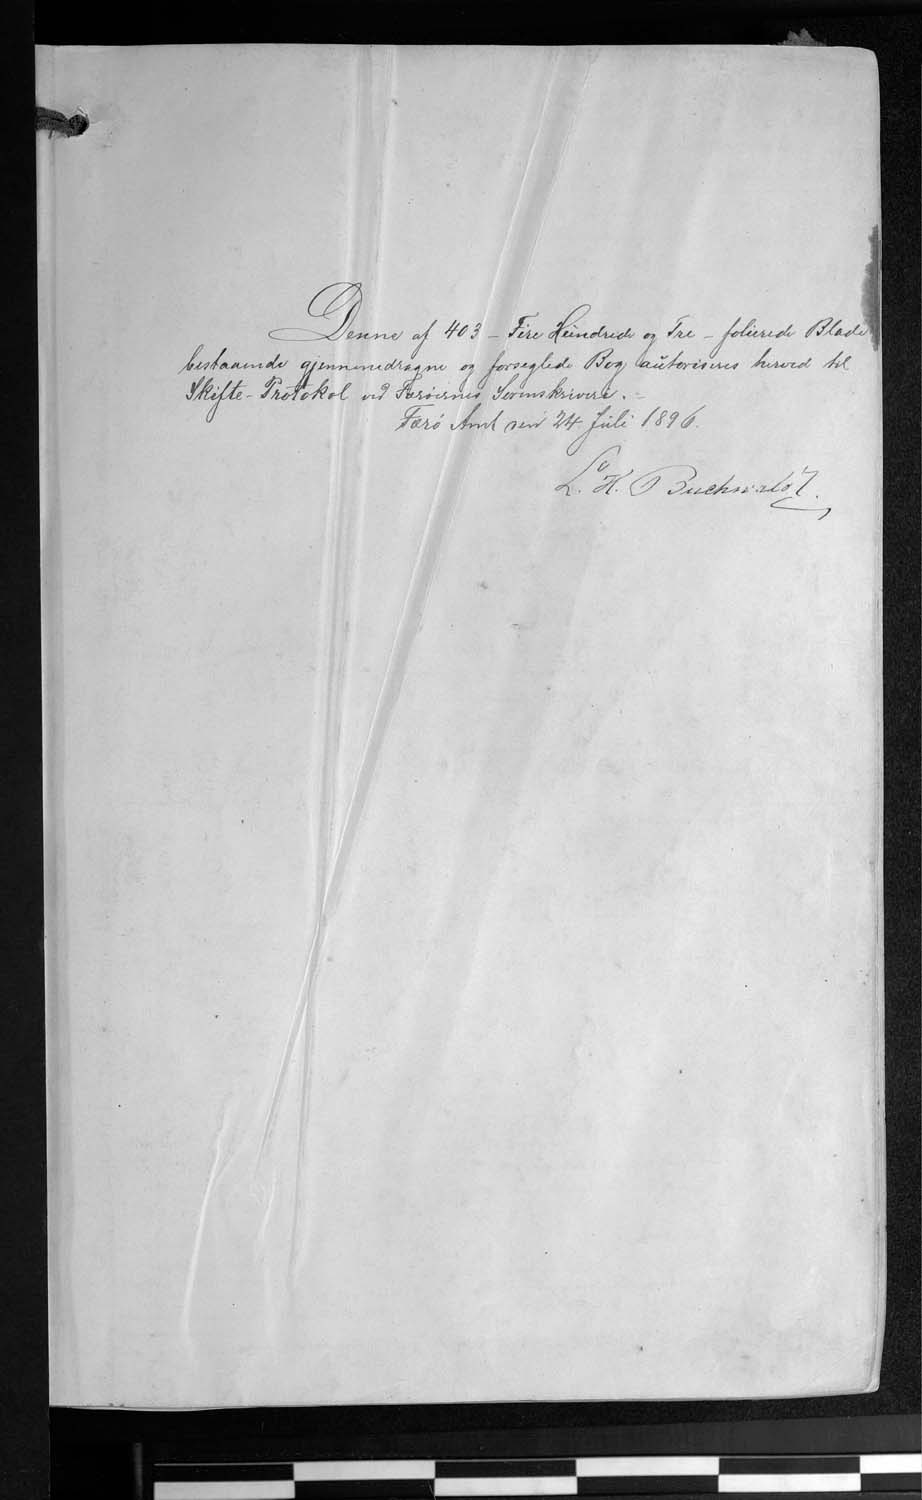 Denne af 403 – Fire Hundrede og Tre – folierede Blade
bestaaende gjennemdragne og forseglede Bog autoriseres herved til
Skifte-Protokol ved Færöernes Sorenskriveri.
Færö Amt den 24 Juli 1896.
L. H. Buchwaldt.